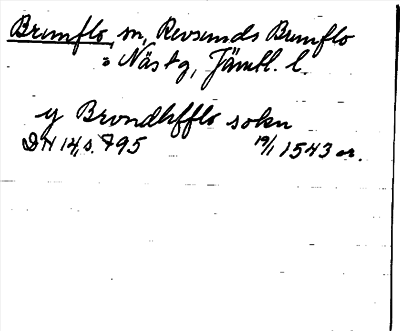 Brunflo sn, Revsunds Brunflo
o Näs tg, Jämtl. l.
y Brondhfflo sokn
DN 14, s. 795 19/1 1543 or.